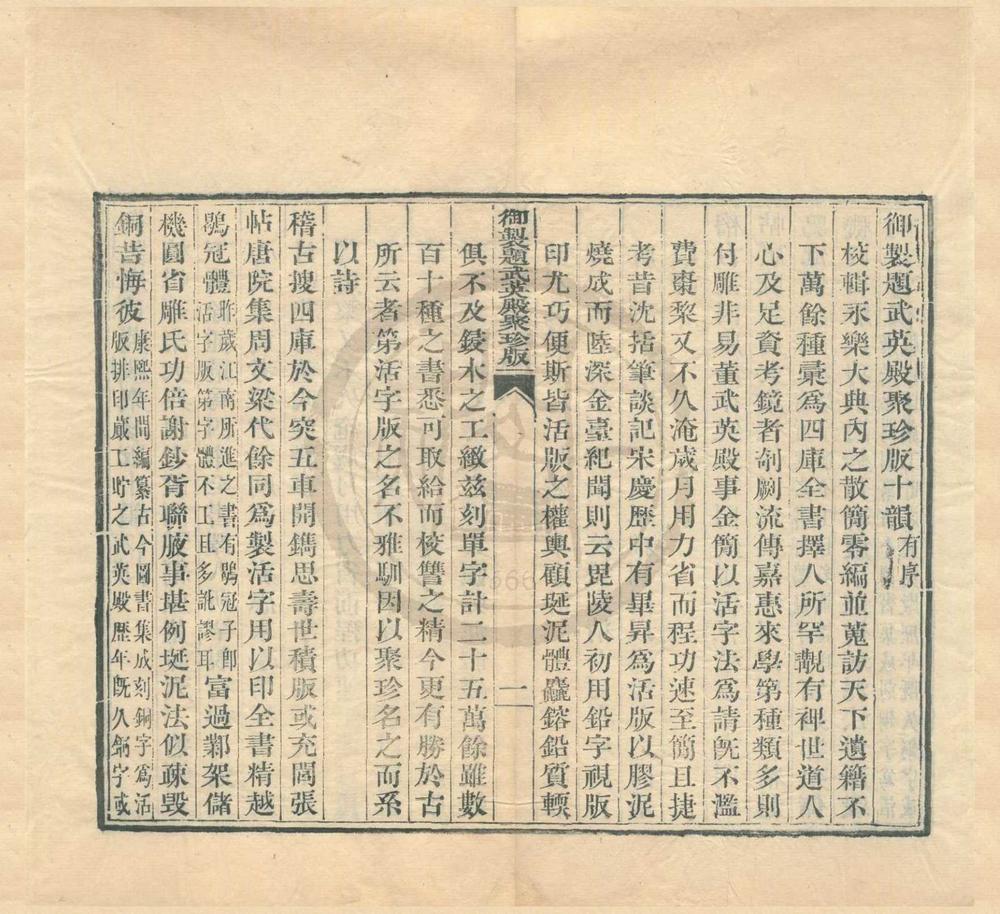 御製題武英殿聚珍版十韻有序
校輯永樂大典內之散簡零編並蒐訪天下遺籍不
下萬餘種彙為四庫全書擇人所罕覯有裨世道人
心及足資考鏡者剞劂流傳嘉惠來學第種類多則
付雕非易董武英殿事金簡以活字法為請既不濫
費棗棃又不久淹歲月用力省而程功速至簡且捷
考昔沈括筆談記宋慶歷中有畢昇為活版以膠泥
燒成而陸深金臺紀聞則云毘陵人初用鉛字視版
印尤巧便斯皆活版之權輿顧埏泥體麤鎔鉛質輭
御製題武英殿聚珍版
一
俱不及鋟木之工緻茲刻單字計二十五萬餘雖數
百十種之書悉可取給而校讐之精今更有勝於古
所云者第活字版之名不雅馴因以聚珍名之而系
以詩
稽古搜四庫於今突五車開鐫思壽世積版或充閭張
帖唐院集周文梁代餘同為製活字用以印全書精越
鶡冠體昨歲江南所進之書有鶡冠子即
活字版第字體不工且多訛謬耳富過鄴架儲
機圓省雕氏功倍謝鈔胥聯腋事堪例埏泥法似疎毁
銅昔悔彼康熙年間編纂古今圖書集成刻銅字為活
版排印蕆工貯之武英殿歷年既久銅字或